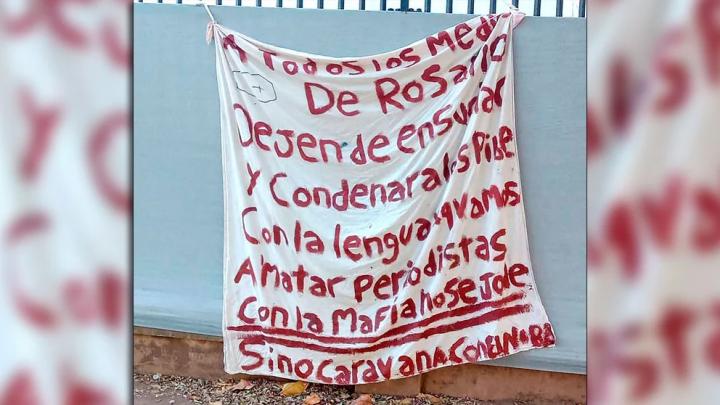 A Todos los Medi
De RoSaRio
DeJen de ensuciar
Y Condenar a los PiBe
Con la lengua + q vamos
A Matar PeRiodistas
Con la MaFia no se Jode
Sino Caravana Con el